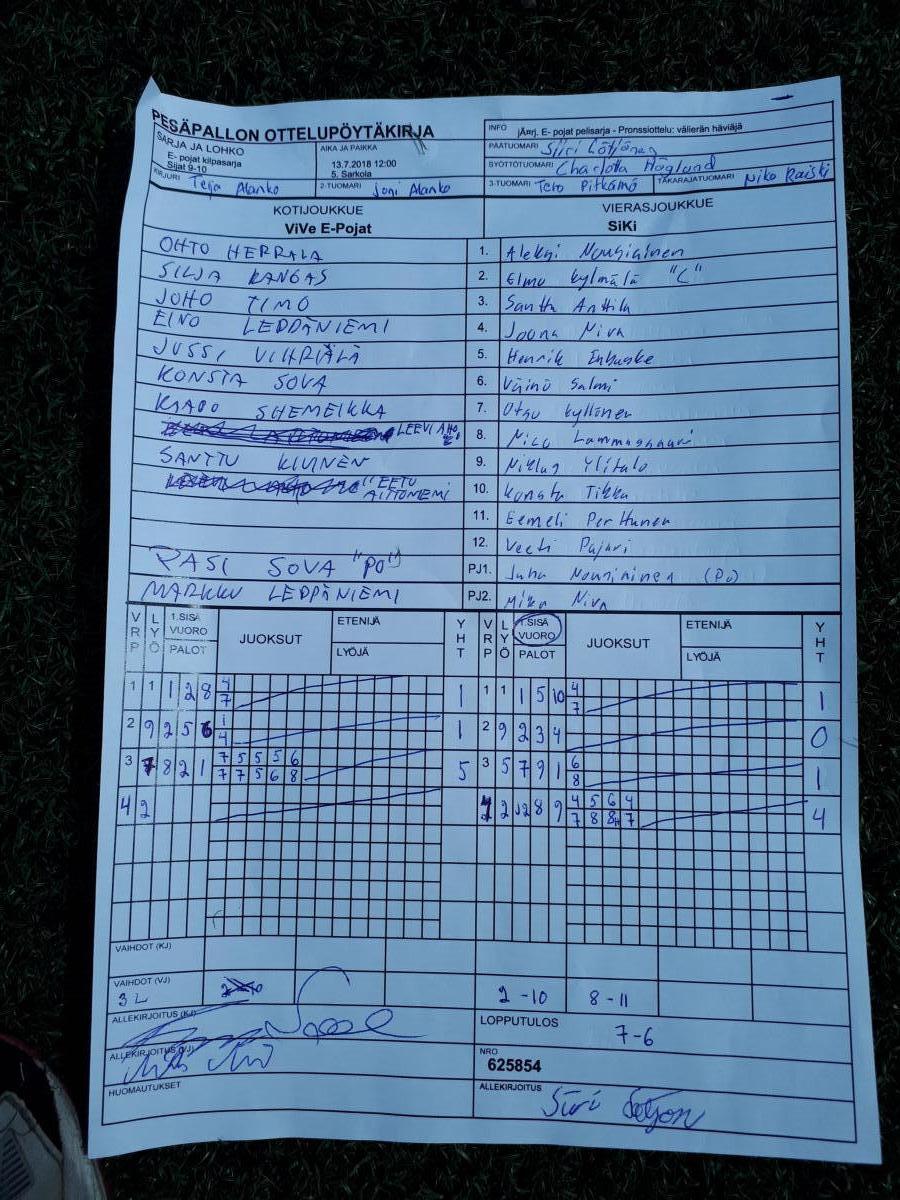 PESÄPALLON OTTELUPÖYTÄKIRJA
INFO jÄnrj. E- pojat pelisarja - Pronssiottelu: välierän häviäjä
SARJA JA LOHKO
E- pojat kilpasarja
Sijat 9-10
AIKA JA PAIKKA
13.7.2018 12:00
5. Sarkola
PÄÄTUOMARI Siiri
SYÖTTÖTUOMARI Charlotta Höglund
KIRJURI Teija Alanko
2-TUOMARI Joni Alanko
3-TUOMARI Tero Pitkämö
TAKARAJATUOMARI Niko Raiski
KOTIJOUKKUE
ViVe E-Pojat
VIERASJOUKKUE
SiKi
OHTO HERRALA 1. Aleksi Nousiainen
SILJA KANGAS 2. Elmo Kylmälä "C"
JUHO TIMO 3. Santtu Anttila
EINO LEPPÄNIEMI 4. Joona Niva
JUSSI VIHRIÄLÄ 5. Henrik
KONSTA SOVA 6. Väinö Salmi
KAAPO SHEMEIKKA 7. Otso Kyllönen
LEEVI AHO 8. Nico
SANTTU KIVINEN 9. Niklas Ylitalo
EETU AITTONIEMI 10. Konsta Tikka
11. Eemeli Perttunen
12. Veeti Pajari
PASI SOVA "PO" PJ1. Juha Nousiainen (Po)
MARKKU LEPPÄNIEMI PJ2. Mika Niva
VRP LYÖ 1.SISÄ VUORO PALOT JUOKSUT ETENIJÄ LYÖJÄ YHT VRP LYÖ 1.SISÄ VUORO PALOT JUOKSUT ETENIJÄ LYÖJÄ YHT
1 1 1 2 8 4 1 1 1 1 5 10 4 1
7 7
2 9 2 5 6 1 1 2 9 2 3 4 0
4
3 7 8 2 1 7 5 5 5 6 5 3 5 7 9 1 6 1
7 7 5 6 8 8
4 2 2 8 9 4 5 6 4 4
7 8 8 7
VAIHDOT (KJ)
VAIHDOT (VJ)
3L 2 -10 8 - 11
ALLEKIRJOITUS (KJ)
LOPPUTULOS 7-6
ALLEKIRJOITUS (VJ)
NRO
625854
HUOMAUTUKSET
ALLEKIRJOITUS
Siiri